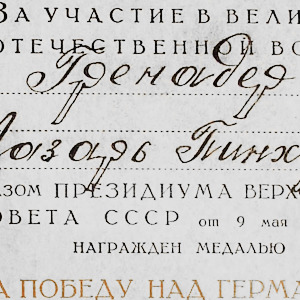 ЗА УЧАСТИЕ В ВЕЛИ
ОТЕЧЕСТВЕННОЙ ВО
Гренадер
Лазарь Пинх
АЗОМ ПРЕЗИДИУМА ВЕРХ
ОВЕТА СССР от 9 мая
НАГРАЖДЕН МЕДАЛЬЮ
А ПОБЕДУ НАД ГЕРМА